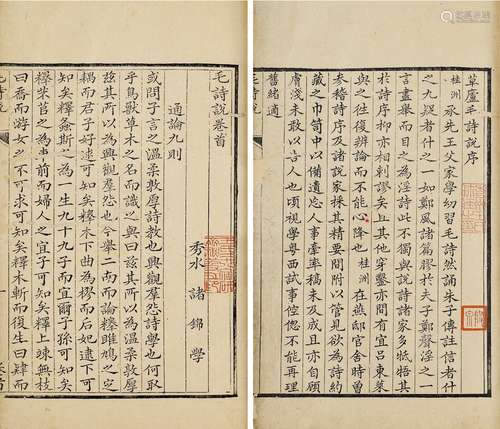 草廬毛詩說序
桂洲承先王父家學幼習毛詩然誦朱子傳註信者什
之九疑者什之一如鄭風諸篇膠於夫子鄭聲淫一
言盡舉而目為淫詩此不獨與說詩諸家多牴牾其
於詩序抑亦相刺謬矣且其他穿鑿亦間有宜呂東萊
與之往復辨論而不能心降也桂洲在燕邸官舍時曾
參稽詩序及諸說家採其精要間附以管見欲為詩約
藏之巾笥中以備遺忘人事牽率稿未及成且亦自顧
膚淺未敢以言人也頃視學粵西試事倥偬不能再理
舊緒適
毛詩說卷首
秀水 諸錦 學
通論九則
或問子言之溫柔敦厚詩教也興觀羣怨詩學也
乎鳥獸草木之名而識之與曰兹其所以為溫柔敦厚
兹其所以為興觀羣怨也今舉二南而論釋雎鳩之定
耦而君子好逑可知矣釋木下曲為樛而后妃逮下可
知矣釋螽斯之為一生九十九子而宜爾子孫可知矣
釋芣苢之為車前而婦人之宜子可知矣釋上竦無枝
曰喬而游女之不可求可知矣釋木斬而復生曰肄而